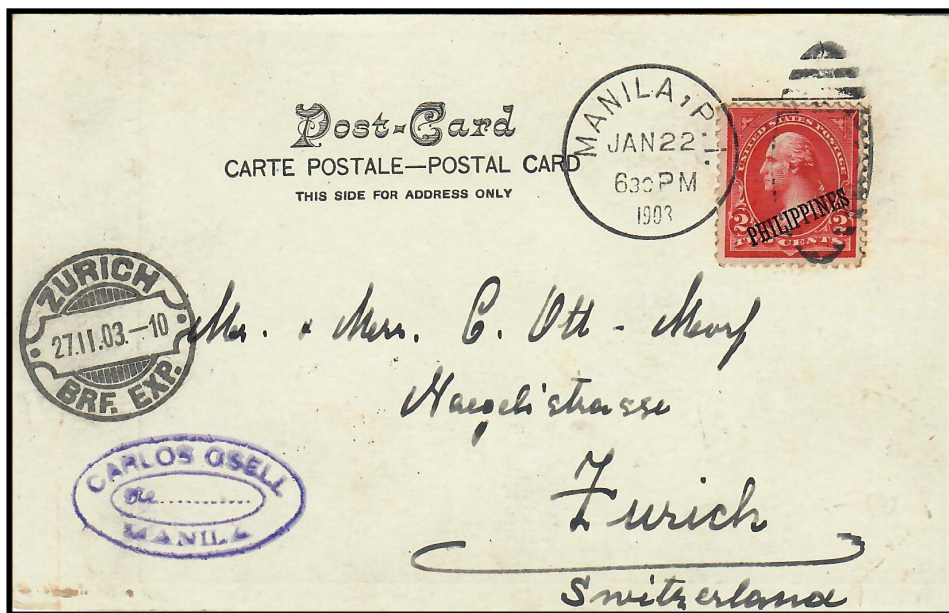 Post-Card
CARTE POSTALE—POSTAL CARD
THIS SIDE FOR ADDRESS ONLY
MANILA, P.I.
JAN 22
630 PM
1903
UNITED STATES POSTAGE
PHILIPPINES
2 2
TWO CENTS
ZURICH
27.II.03.–10
BRF. EXP.
Mr. & Mrs. C. Ott - Morf
Naegelistrasse
Zurich
Switzerland
CARLOS GSELL
MANILA